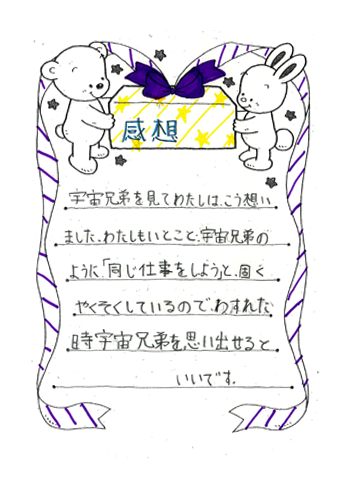 感想
宇宙兄弟を見てわたしは、こう想い
ました、わたしもいとこと、宇宙兄弟の
ように「同じ仕事をしよう」と、固く
やくそくしているので、わすれた
時宇宙兄弟を思い出せると
いいです。